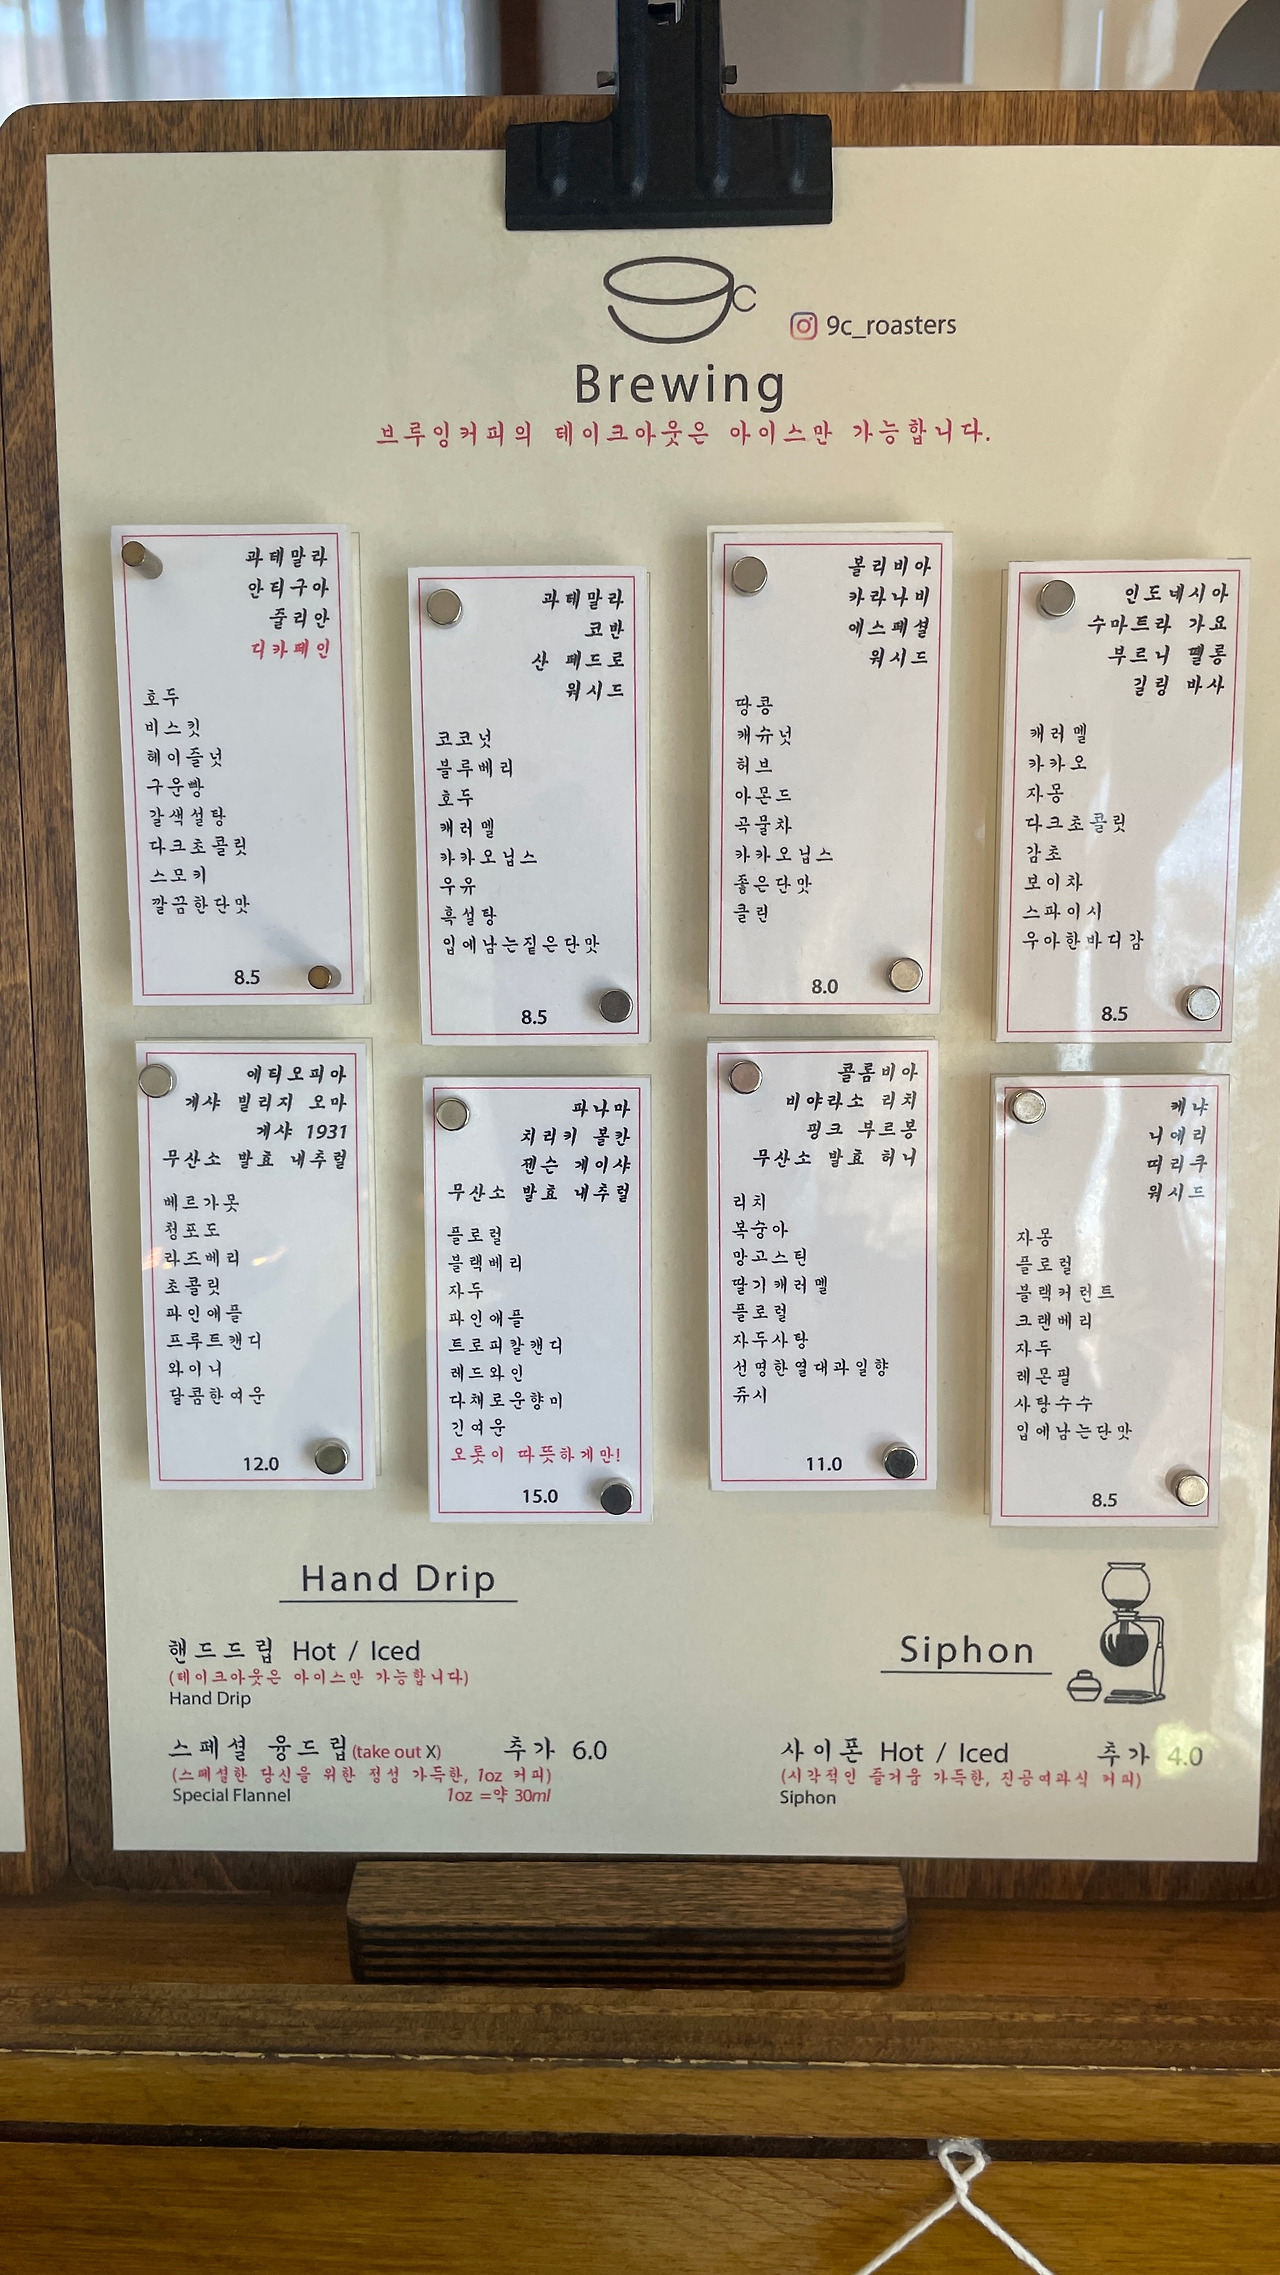 9c_roasters
Brewing
브루잉커피의 테이크아웃은 아이스만 가능합니다.
과테말라
안티구아
줄리안
디카페인
호두
비스킷
헤이즐넛
구운빵
갈색설탕
다크초콜릿
스모키
깔끔한단맛
8.5
과테말라
코반
산 페드로
워시드
코코넛
블루베리
호두
캐러멜
카카오닙스
우유
흑설탕
입에남는짙은단맛
8.5
볼리비아
카라나비
에스페셜
워시드
땅콩
캐슈넛
허브
아몬드
곡물차
카카오닙스
좋은단맛
클린
8.0
인도네시아
수마트라 가요
부르니 뗄롱
길링 바사
캐러멜
카카오
자몽
다크초콜릿
감초
보이차
스파이시
우아한바디감
8.5
에티오피아
게샤 빌리지 오마
게샤 1931
무산소 발효 내추럴
베르가못
청포도
라즈베리
초콜릿
파인애플
프루트캔디
와이니
달콤한여운
12.0
파나마
치리키 볼칸
젠슨 게이샤
무산소 발효 내추럴
플로럴
블랙베리
자두
파인애플
트로피칼캔디
레드와인
다채로운향미
긴여운
오롯이 따뜻하게만!
15.0
콜롬비아
비야라소 리치
핑크 부르봉
무산소 발효 허니
리치
복숭아
망고스틴
딸기캐러멜
플로럴
자두사탕
선명한열대과일향
쥬시
11.0
케냐
니에리
띠리쿠
워시드
자몽
플로럴
블랙커런트
크랜베리
자두
레몬필
사탕수수
입에남는단맛
8.5
Hand Drip
핸드드립 Hot / Iced
(테이크아웃은 아이스만 가능합니다)
Hand Drip
스페셜 융드립(take out X) 추가 6.0
(스페셜한 당신을 위한 정성 가득한, 1oz 커피)
Special Flannel 1oz =약 30ml
Siphon
사이폰 Hot / Iced 추가 4.0
(시각적인 즐거움 가득한, 진공여과식 커피)
Siphon